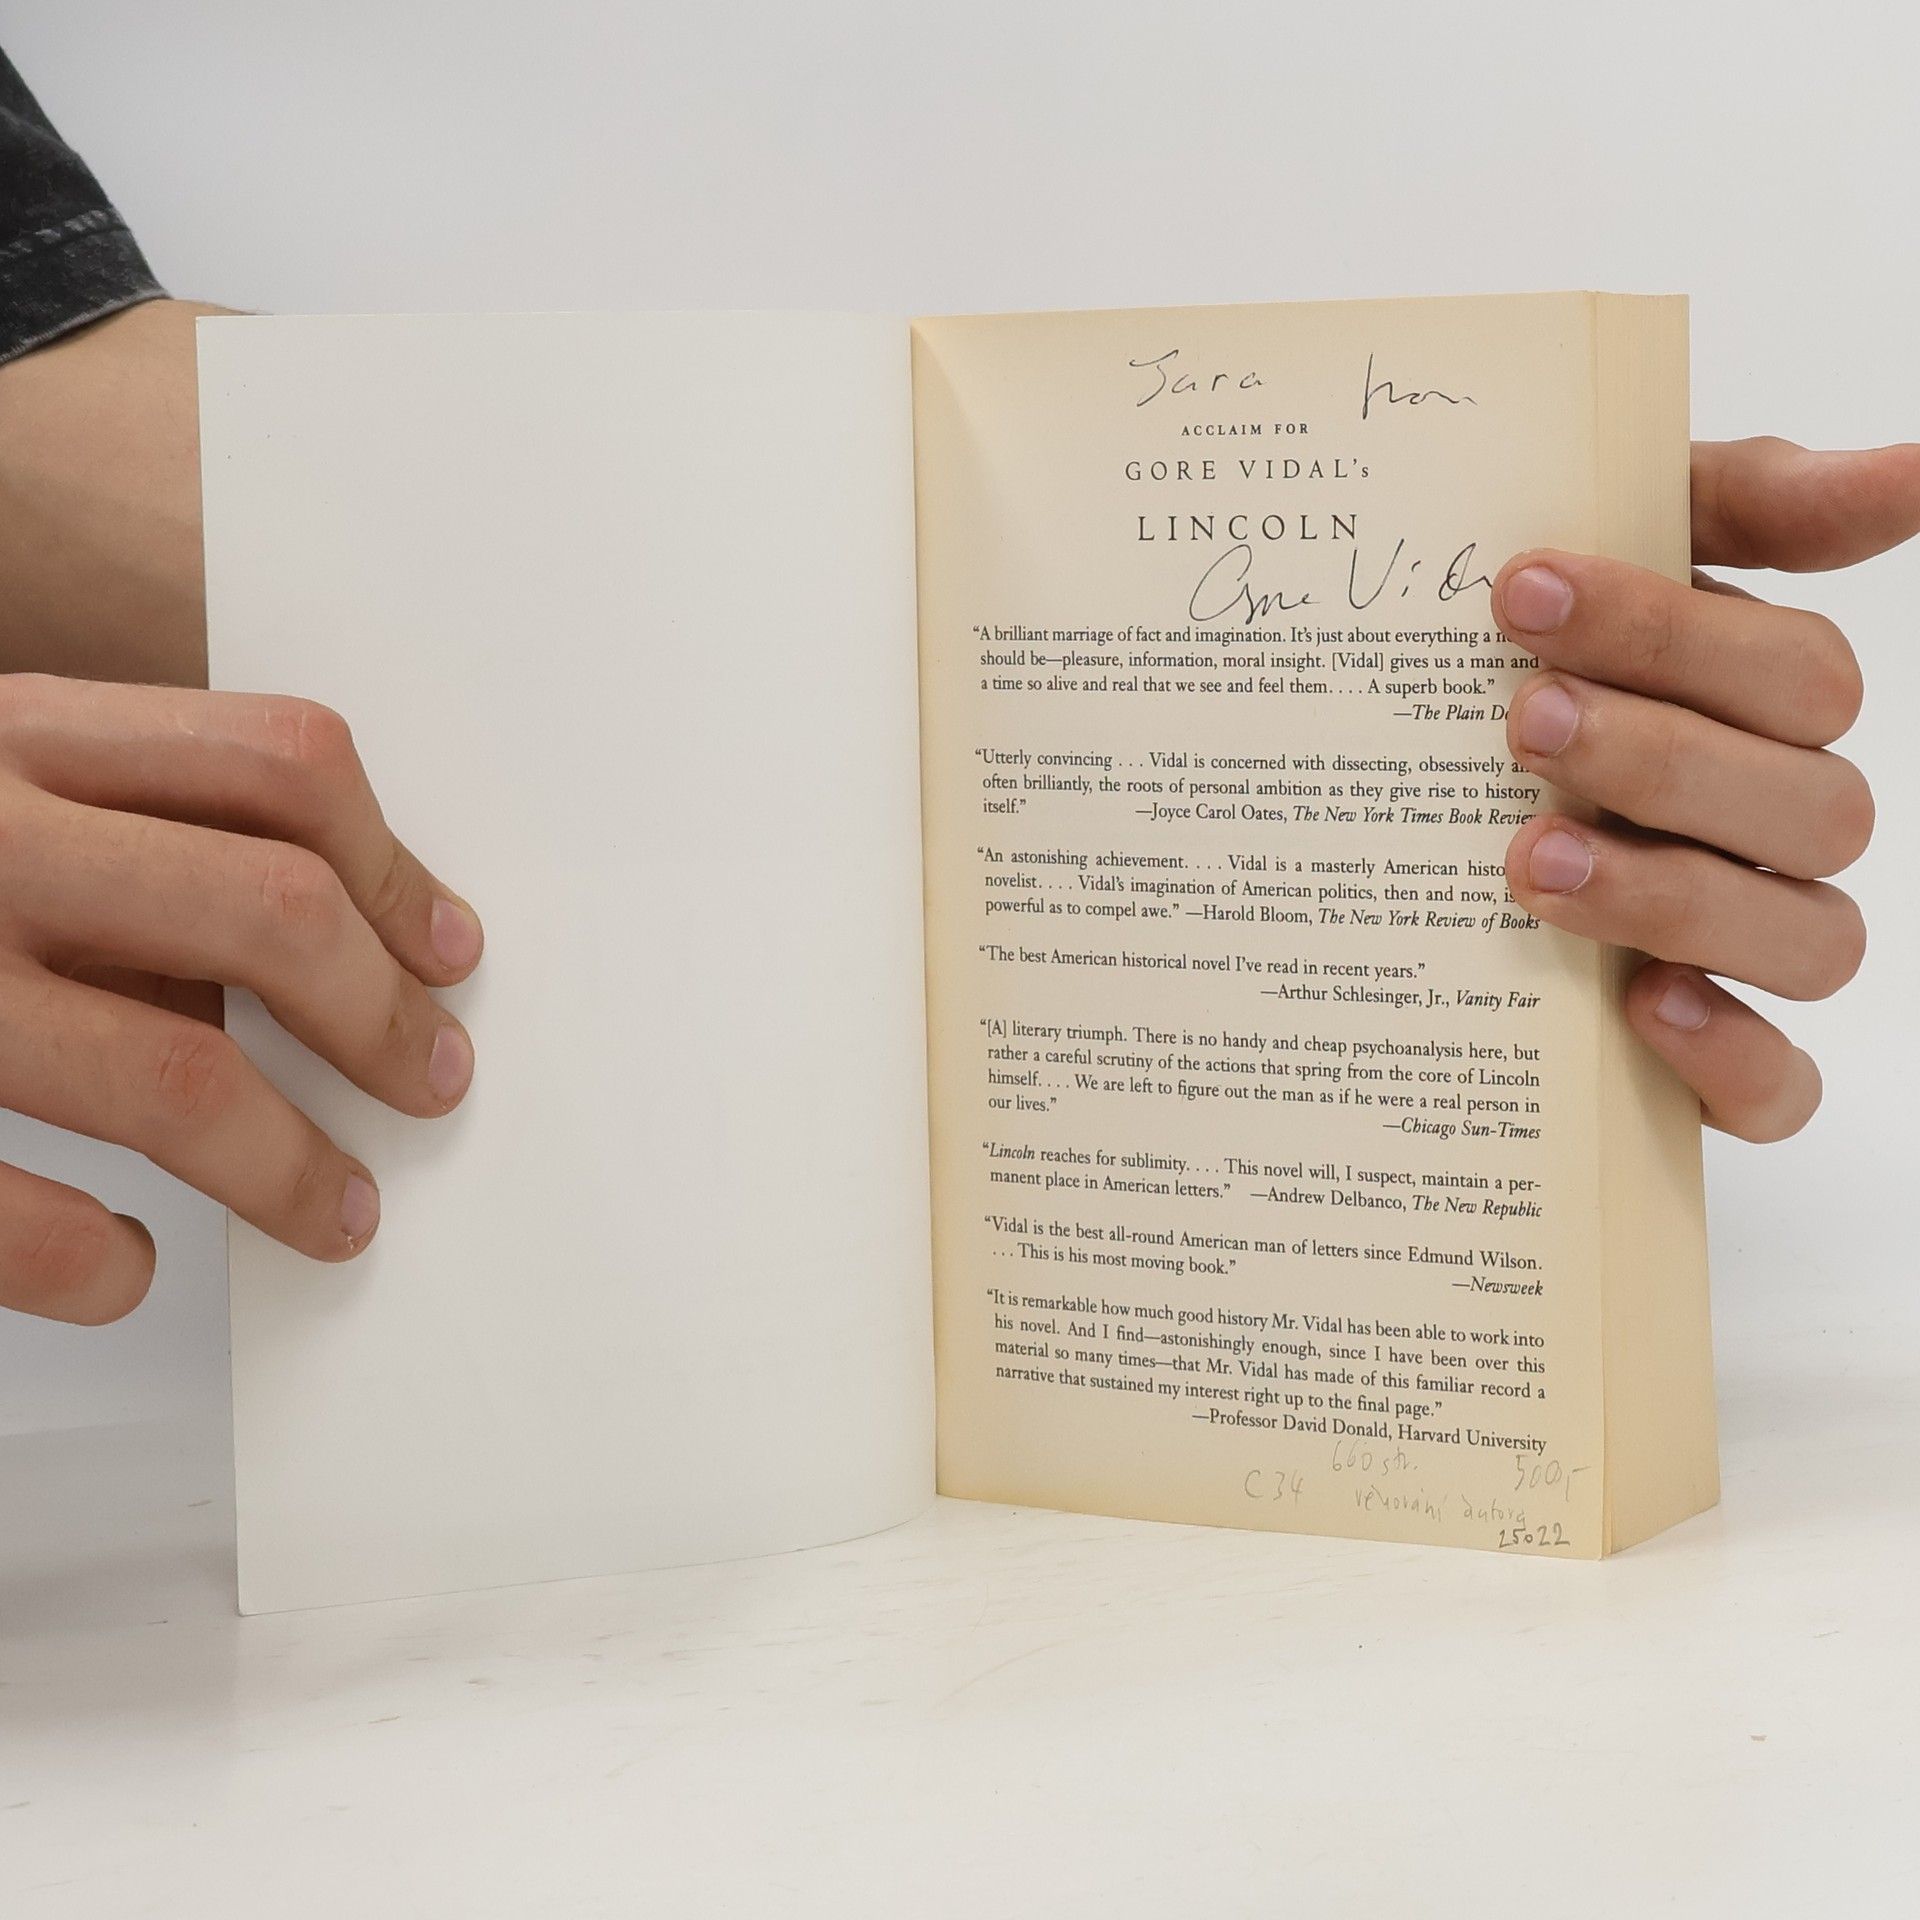 Sara from
ACCLAIM FOR
GORE VIDAL's
LINCOLN
Gore Vidal
“A brilliant marriage of fact and imagination. It’s just about everything a
should be—pleasure, information, moral insight. [Vidal] gives us a man and
a time so alive and real that we see and feel them. . . . A superb book.”
—The Plain
“Utterly convincing . . . Vidal is concerned with dissecting, obsessively
often brilliantly, the roots of personal ambition as they give rise to history
itself.” —Joyce Carol Oates, The New York Times Book Review
“An astonishing achievement. . . . Vidal is a masterly American
novelist. . . . Vidal’s imagination of American politics, then and now,
powerful as to compel awe.” —Harold Bloom, The New York Review of Books
“The best American historical novel I’ve read in recent years.”
—Arthur Schlesinger, Jr., Vanity Fair
“[A] literary triumph. There is no handy and cheap psychoanalysis here, but
rather a careful scrutiny of the actions that spring from the core of Lincoln
himself. . . . We are left to figure out the man as if he were a real person in
our lives.”
—Chicago Sun-Times
“Lincoln reaches for sublimity. . . . This novel will, I suspect, maintain a per-
manent place in American letters.” —Andrew Delbanco, The New Republic
“Vidal is the best all-round American man of letters since Edmund Wilson.
. . . This is his most moving book.”
—Newsweek
“It is remarkable how much good history Mr. Vidal has been able to work into
his novel. And I find—astonishingly enough, since I have been over this
material so many times—that Mr. Vidal has made of this familiar record a
narrative that sustained my interest right up to the final page.”
—Professor David Donald, Harvard University
660 str. 500,-
C 34 věnování autora
25022